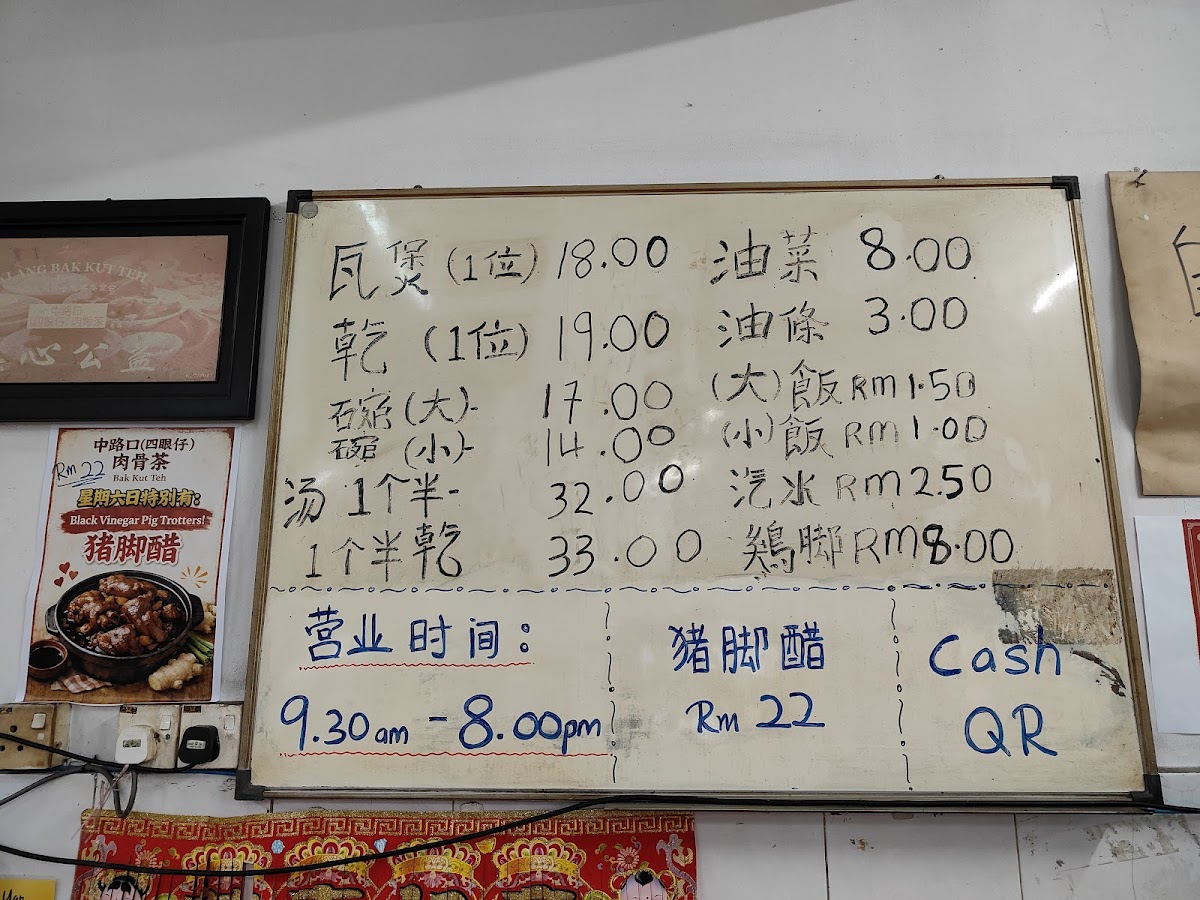 KLANG BAK KUT TEH
中路口
心公益
中路口(四眼仔)
肉骨茶
Rm 22
Bak Kut Teh
星期六日特别有:
Black Vinegar Pig Trotters!
猪脚醋
瓦煲 (1位) 18.00
乾 (1位) 19.00
碗(大)- 17.00
碗(小)- 14.00
汤 1个半- 32.00
1个半乾 33.00
油菜 8.00
油條 3.00
(大)飯 RM 1.50
(小)飯 RM 1.00
汽水 RM 2.50
鷄脚 RM 8.00
营业时间:
9.30am - 8.00pm
猪脚醋
Rm 22
Cash
QR